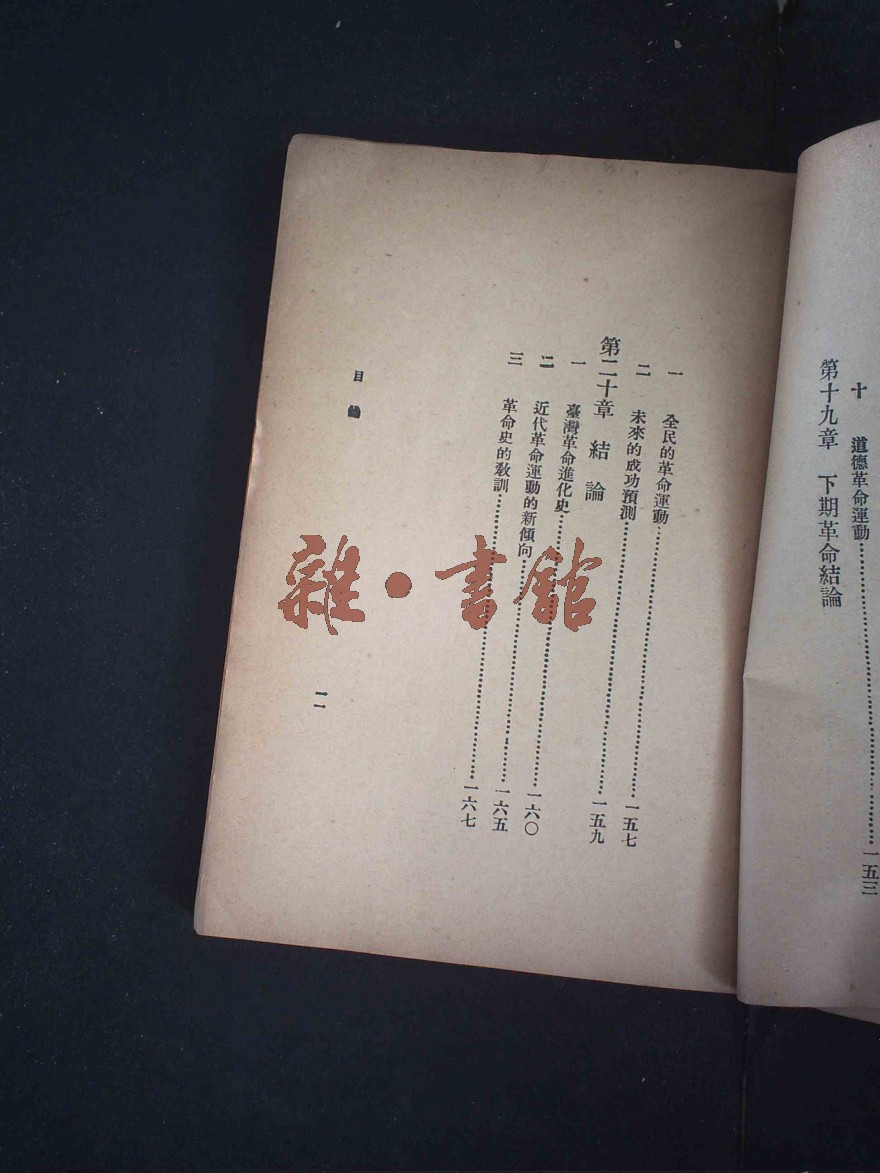 十 道德革命運動……………………一五三
第十九章 下期革命結論
一 全民的革命運動……………………一五七
二 未來的成功預測……………………一五九
第二十章 結論
一 臺灣革命進化史……………………一六〇
二 近代革命運動的新傾向……………………一六五
三 革命史的教訓……………………一六七
目
一一
雜•書館